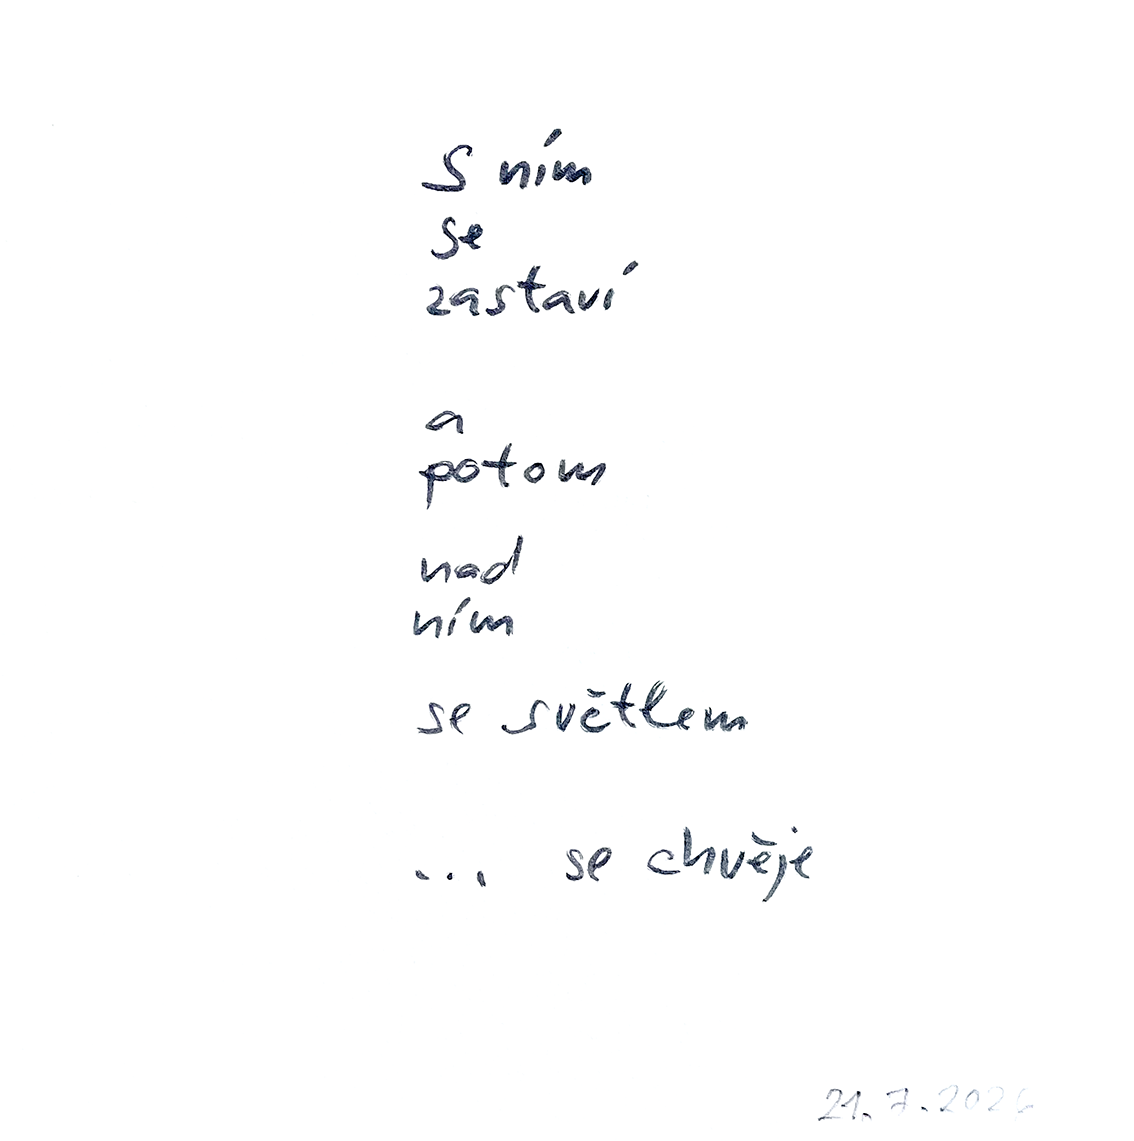 S ním
se
zastaví
a
potom
nad
ním
se světlem
... se chvěje
21. 7. 2026